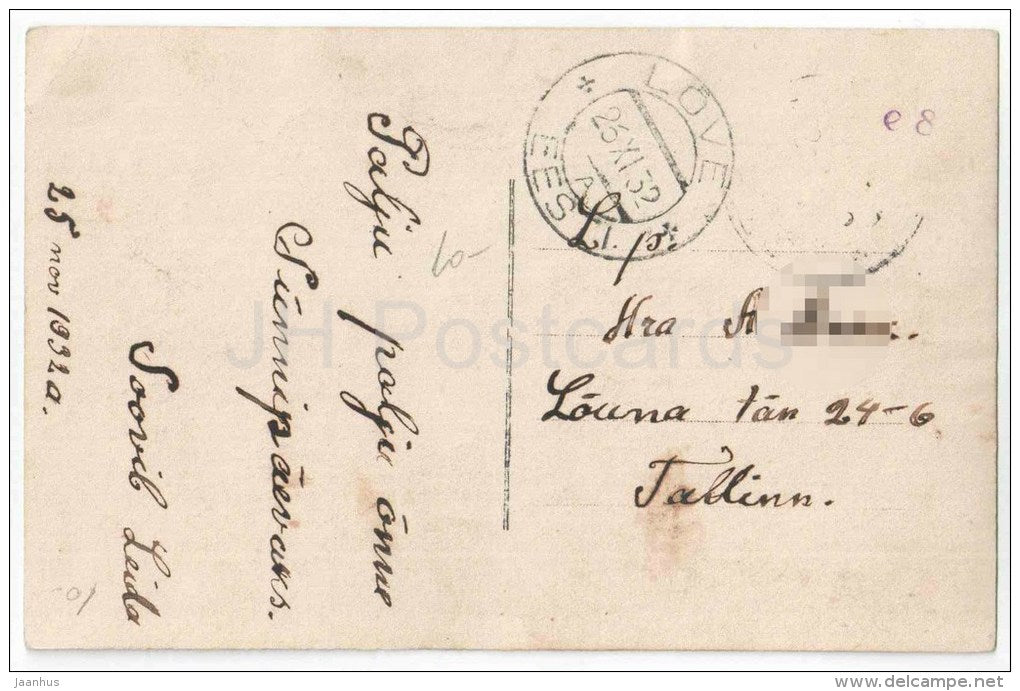 Palju palju õnne
Sünnipäevaks.
Soovib Leida
25 nov 1932 a.
10-
10-
LÕVE
26 XI 32
EESTI
e8
L. p.
Hra A
Lõuna tän 24-6
Tallinn.
JH Postcards
jaanhus
www.delcampe.net